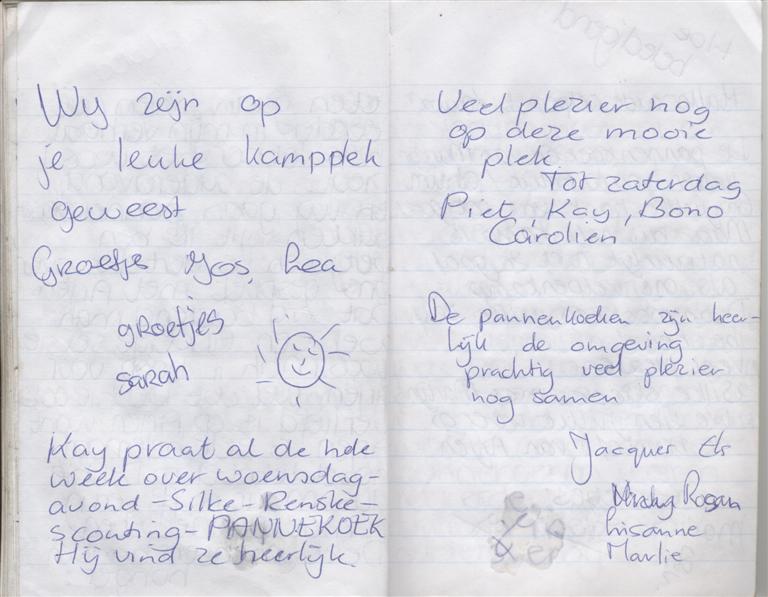 Wij zijn op
je leuke kampplek
geweest
Groetjes Jos, Lea
groetjes
sarah
Kay praat al de hele
week over woensdag-
avond - Silke - Renske -
scouting - PANNEKOEK
Hij vind ze heerlijk.
Veel plezier nog
op deze mooie
plek
Tot zaterdag
Piet, Kay, Bono
Carolien
De pannenkoeken zijn heer-
lijk de omgeving
prachtig veel plezier
nog samen
Jacques Els
Rogan
Lisanne
Marlie